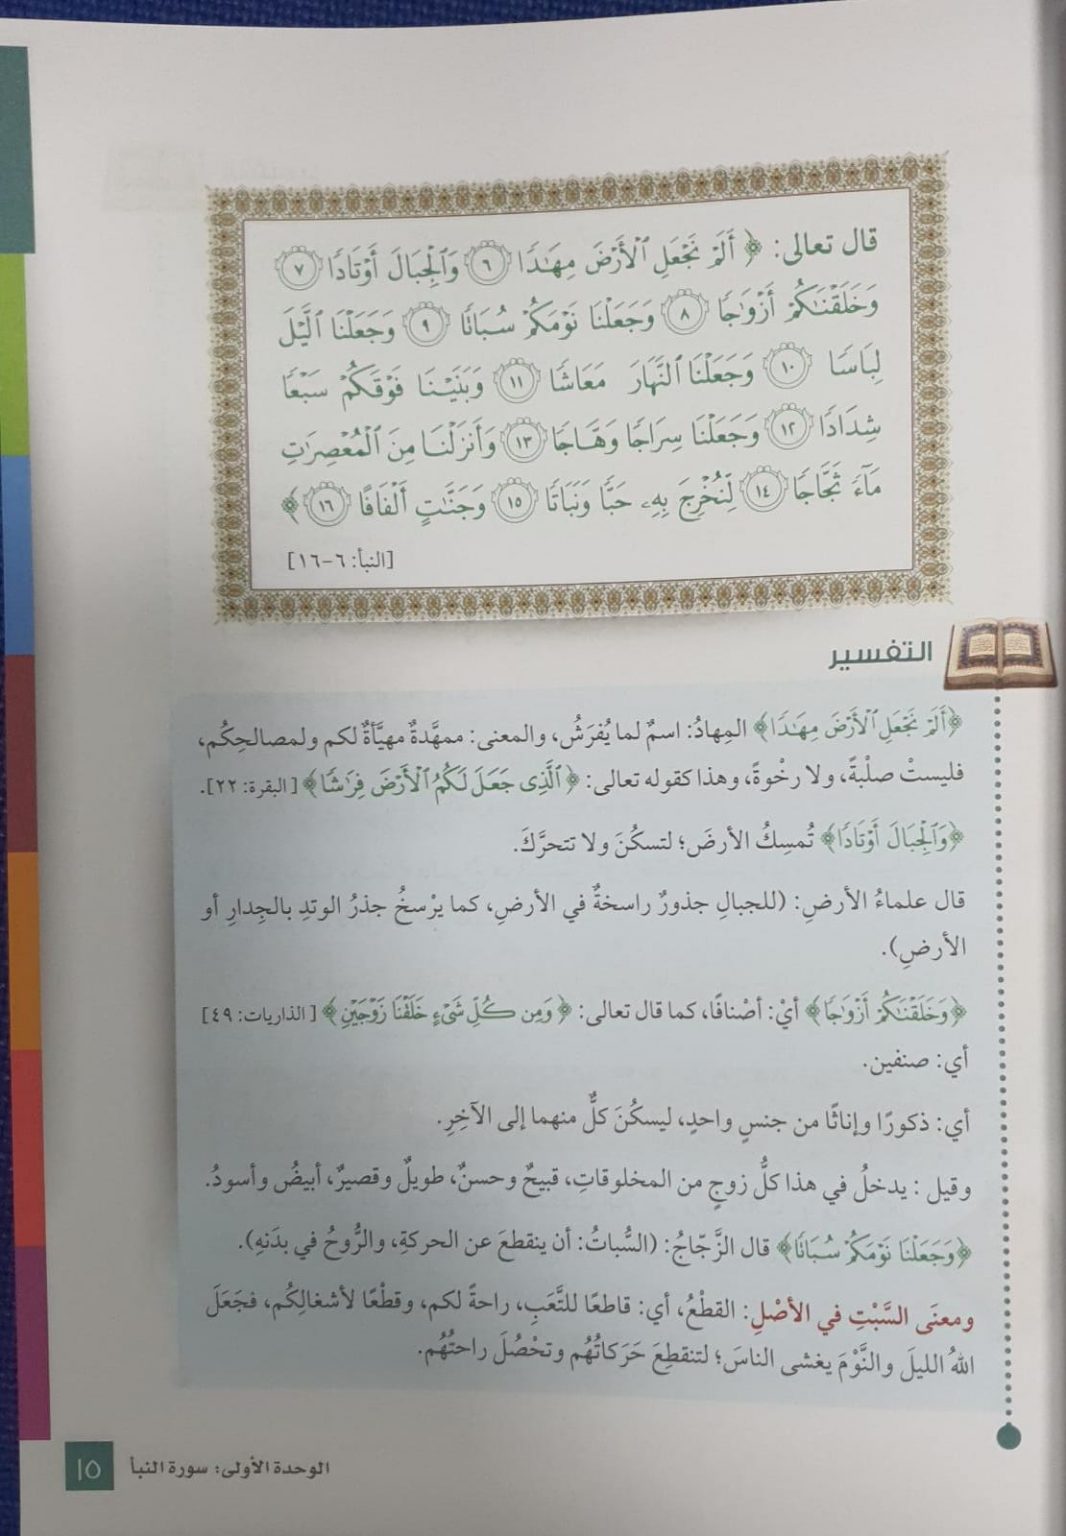 قال تعالى: ﴿ أَلَمْ نَجْعَلِ ٱلْأَرْضَ مِهَٰدًا ٦ وَٱلْجِبَالَ أَوْتَادًا ٧
وَخَلَقْنَٰكُمْ أَزْوَٰجًا ٨ وَجَعَلْنَا نَوْمَكُمْ سُبَاتًا ٩ وَجَعَلْنَا ٱلَّيْلَ
لِبَاسًا ١٠ وَجَعَلْنَا ٱلنَّهَارَ مَعَاشًا ١١ وَبَنَيْنَا فَوْقَكُمْ سَبْعًا
شِدَادًا ١٢ وَجَعَلْنَا سِرَاجًا وَهَّاجًا ١٣ وَأَنزَلْنَا مِنَ ٱلْمُعْصِرَٰتِ
مَآءً ثَجَّاجًا ١٤ لِّنُخْرِجَ بِهِۦ حَبًّا وَنَبَاتًا ١٥ وَجَنَّٰتٍ أَلْفَافًا ١٦ ﴾
[النبأ: ٦-١٦]
التفسير
﴿أَلَمْ نَجْعَلِ ٱلْأَرْضَ مِهَٰدًا﴾ المِهادُ: اسمٌ لما يُفرَشُ، والمعنى: ممهَّدةٌ مهيَّأةٌ لكم ولمصالحِكُم،
فليستْ صلْبةً، ولا رخْوةً، وهذا كقوله تعالى: ﴿ ٱلَّذِى جَعَلَ لَكُمُ ٱلْأَرْضَ فِرَٰشًا﴾ [البقرة: ٢٢].
﴿وَٱلْجِبَالَ أَوْتَادًا﴾ تُمسِكُ الأرضَ؛ لتسكُنَ ولا تتحرَّكَ.
قال علماءُ الأرضِ: (للجبالِ جذورٌ راسخةٌ في الأرضِ، كما يرْسخُ جذرُ الوتدِ بالجِدارِ أو
الأرضِ).
﴿وَخَلَقْنَٰكُمْ أَزْوَٰجًا﴾ أيْ: أصْنافًا، كما قال تعالى: ﴿وَمِن كُلِّ شَىْءٍ خَلَقْنَا زَوْجَيْنِ﴾ [الذاريات: ٤٩]
أي: صنفين.
أي: ذكورًا وإناثًا من جنسٍ واحدٍ، ليسكُنَ كلٌّ منهما إلى الآخِرِ.
وقيل : يدخلُ في هذا كلُّ زوجٍ من المخلوقاتِ، قبيحٌ وحسنٌ، طويلٌ وقصيرٌ، أبيضُ وأسودُ.
﴿وَجَعَلْنَا نَوْمَكُمْ سُبَاتًا﴾ قال الزَّجّاجُ: (السُّباتُ: أن ينقطعَ عن الحركةِ، والرُّوحُ في بدَنهِ).
ومعنَى السَّبْتِ في الأصْلِ: القطْعُ، أي: قاطعًا للتَّعَبِ، راحةً لكم، وقطْعًا لأشغالِكُم، فجَعَلَ
اللهُ الليلَ والنَّوْمَ يغشى الناسَ؛ لتنقطِعَ حَرَكاتُهُم وتحْصُلَ راحتُهُم.
الوحدة الأولى: سورة النبأ ١٥